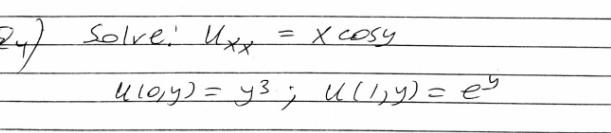 24) Solve: Uxx = x cosy
u(0,y) = y³ ; u(1,y) = e^y